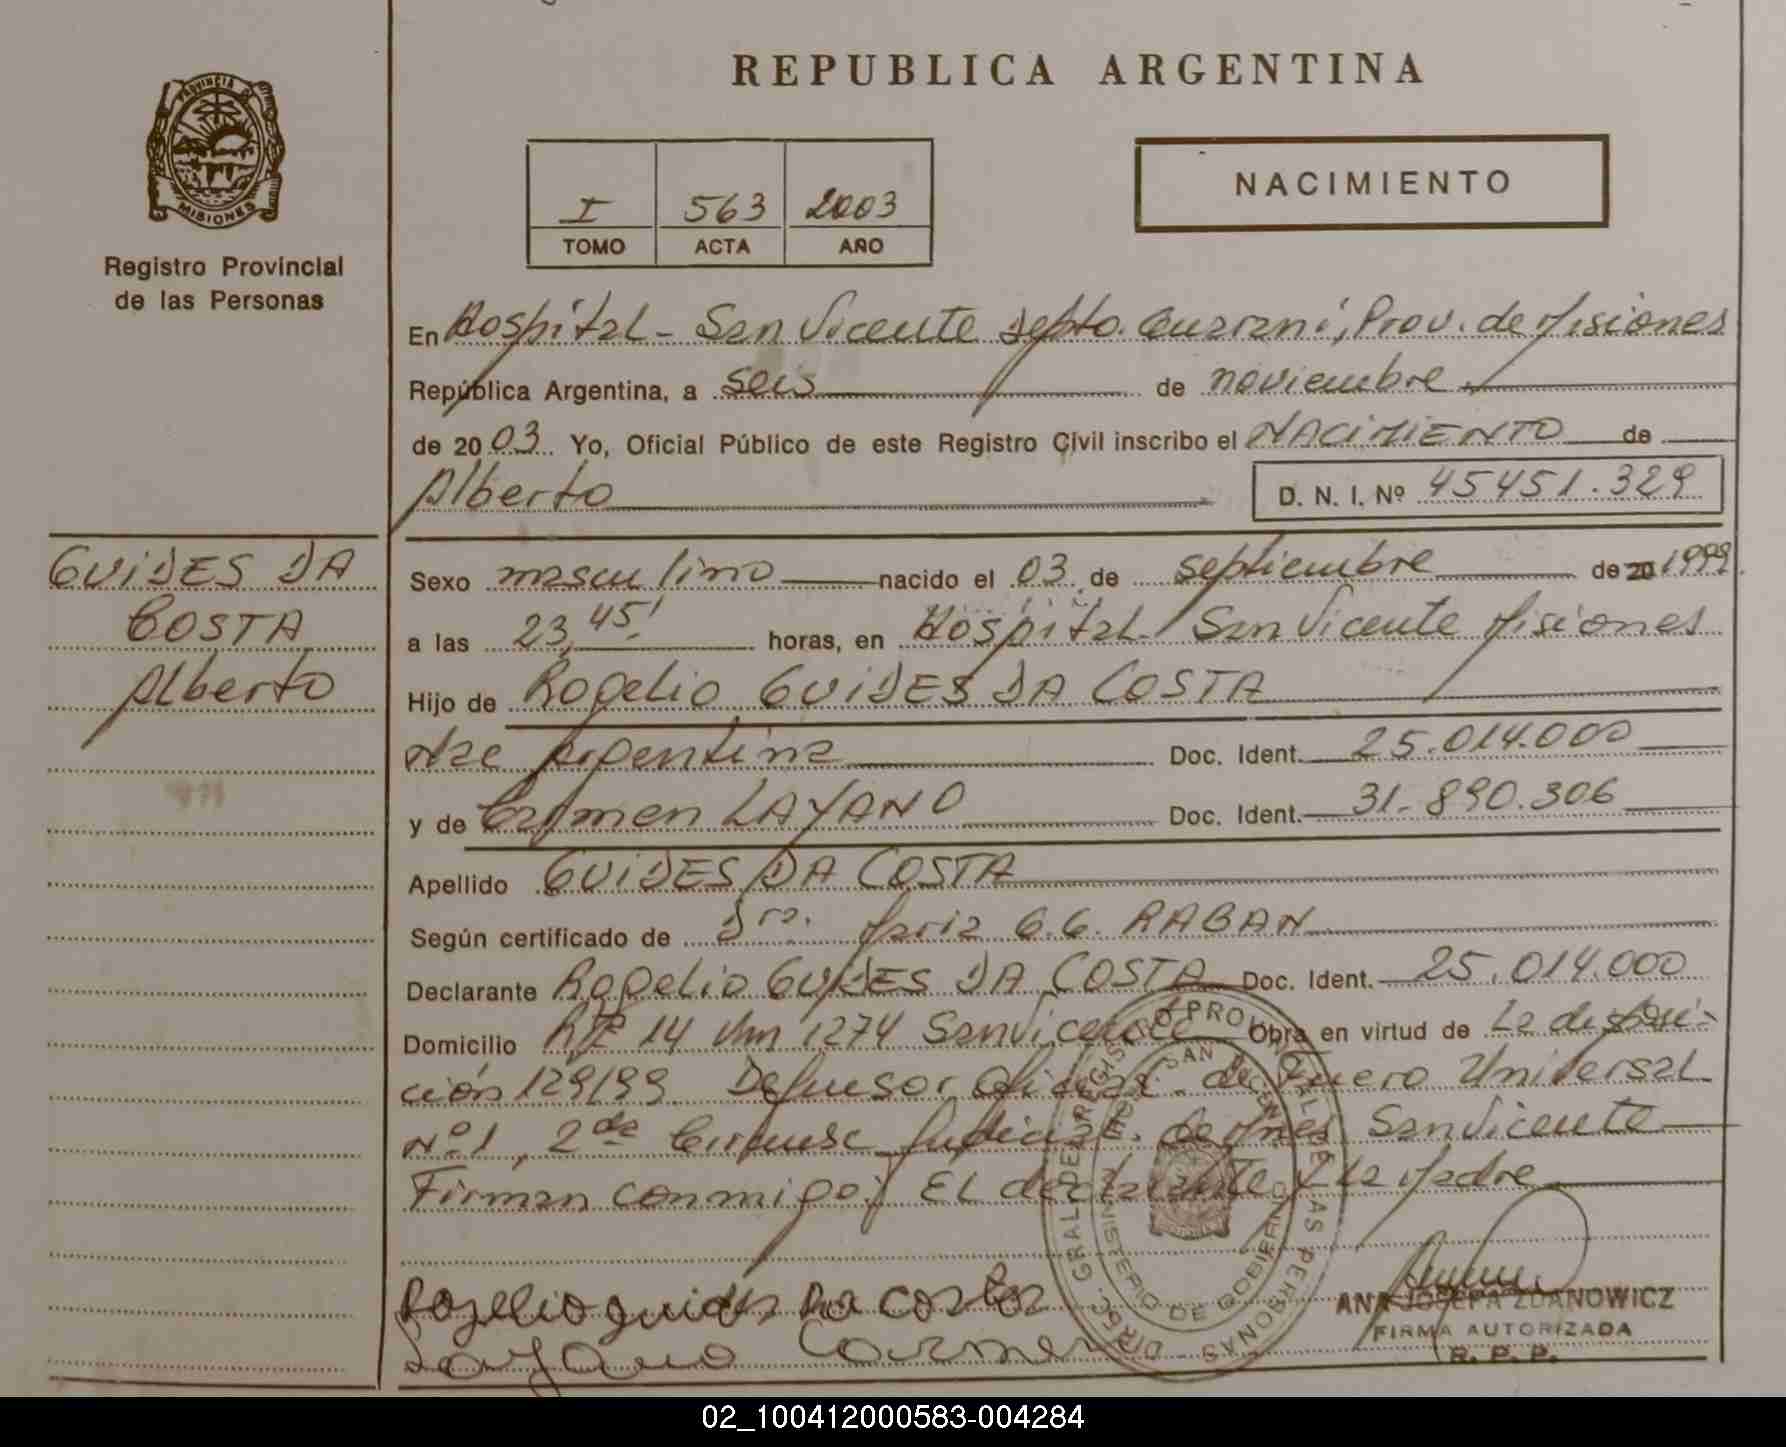 REPUBLICA ARGENTINA
PROVINCIA DE
MISIONES
Registro Provincial
de las Personas
I 563 2003
TOMO ACTA AÑO
NACIMIENTO
En Hospital - San Vicente Depto. Guarani, Prov. de Misiones
República Argentina, a seis de noviembre
de 2003. Yo, Oficial Público de este Registro Civil inscribo el NACIMIENTO de
Alberto D. N. I. Nº 45451.329
GUIDES DA
COSTA
Alberto
Sexo masculino nacido el 03 de septiembre de 20 1999
a las 23,45' horas, en Hospital - San Vicente Misiones
Hijo de Rogelio GUIDES DA COSTA
Nac Argentina Doc. Ident. 25.014.000
y de Carmen LAYANO Doc. Ident. 31.890.306
Apellido GUIDES DA COSTA
Según certificado de Dra. Maria G.G. RABAN
Declarante Rogelio GUIDES DA COSTA Doc. Ident. 25.014.000
Domicilio Rta 14 Km 1274 San Vicente Obra en virtud de La disposi-
ción 129/99 Defensor Oficial de Fuero Universal
Nº1, 2da Circunsc. Judicial de Mnes. San Vicente
Firman conmigo; El declarante y La Madre
Rogelio guides Da costa
Layano Carmen
ANA JOSEFA ZDANOWICZ
FIRMA AUTORIZADA
R. P. P.
DIREC. GRAL. DE REGISTRO PROVINCIAL DE LAS PERSONAS
MINISTERIO DE GOBIERNO
02_100412000583-004284